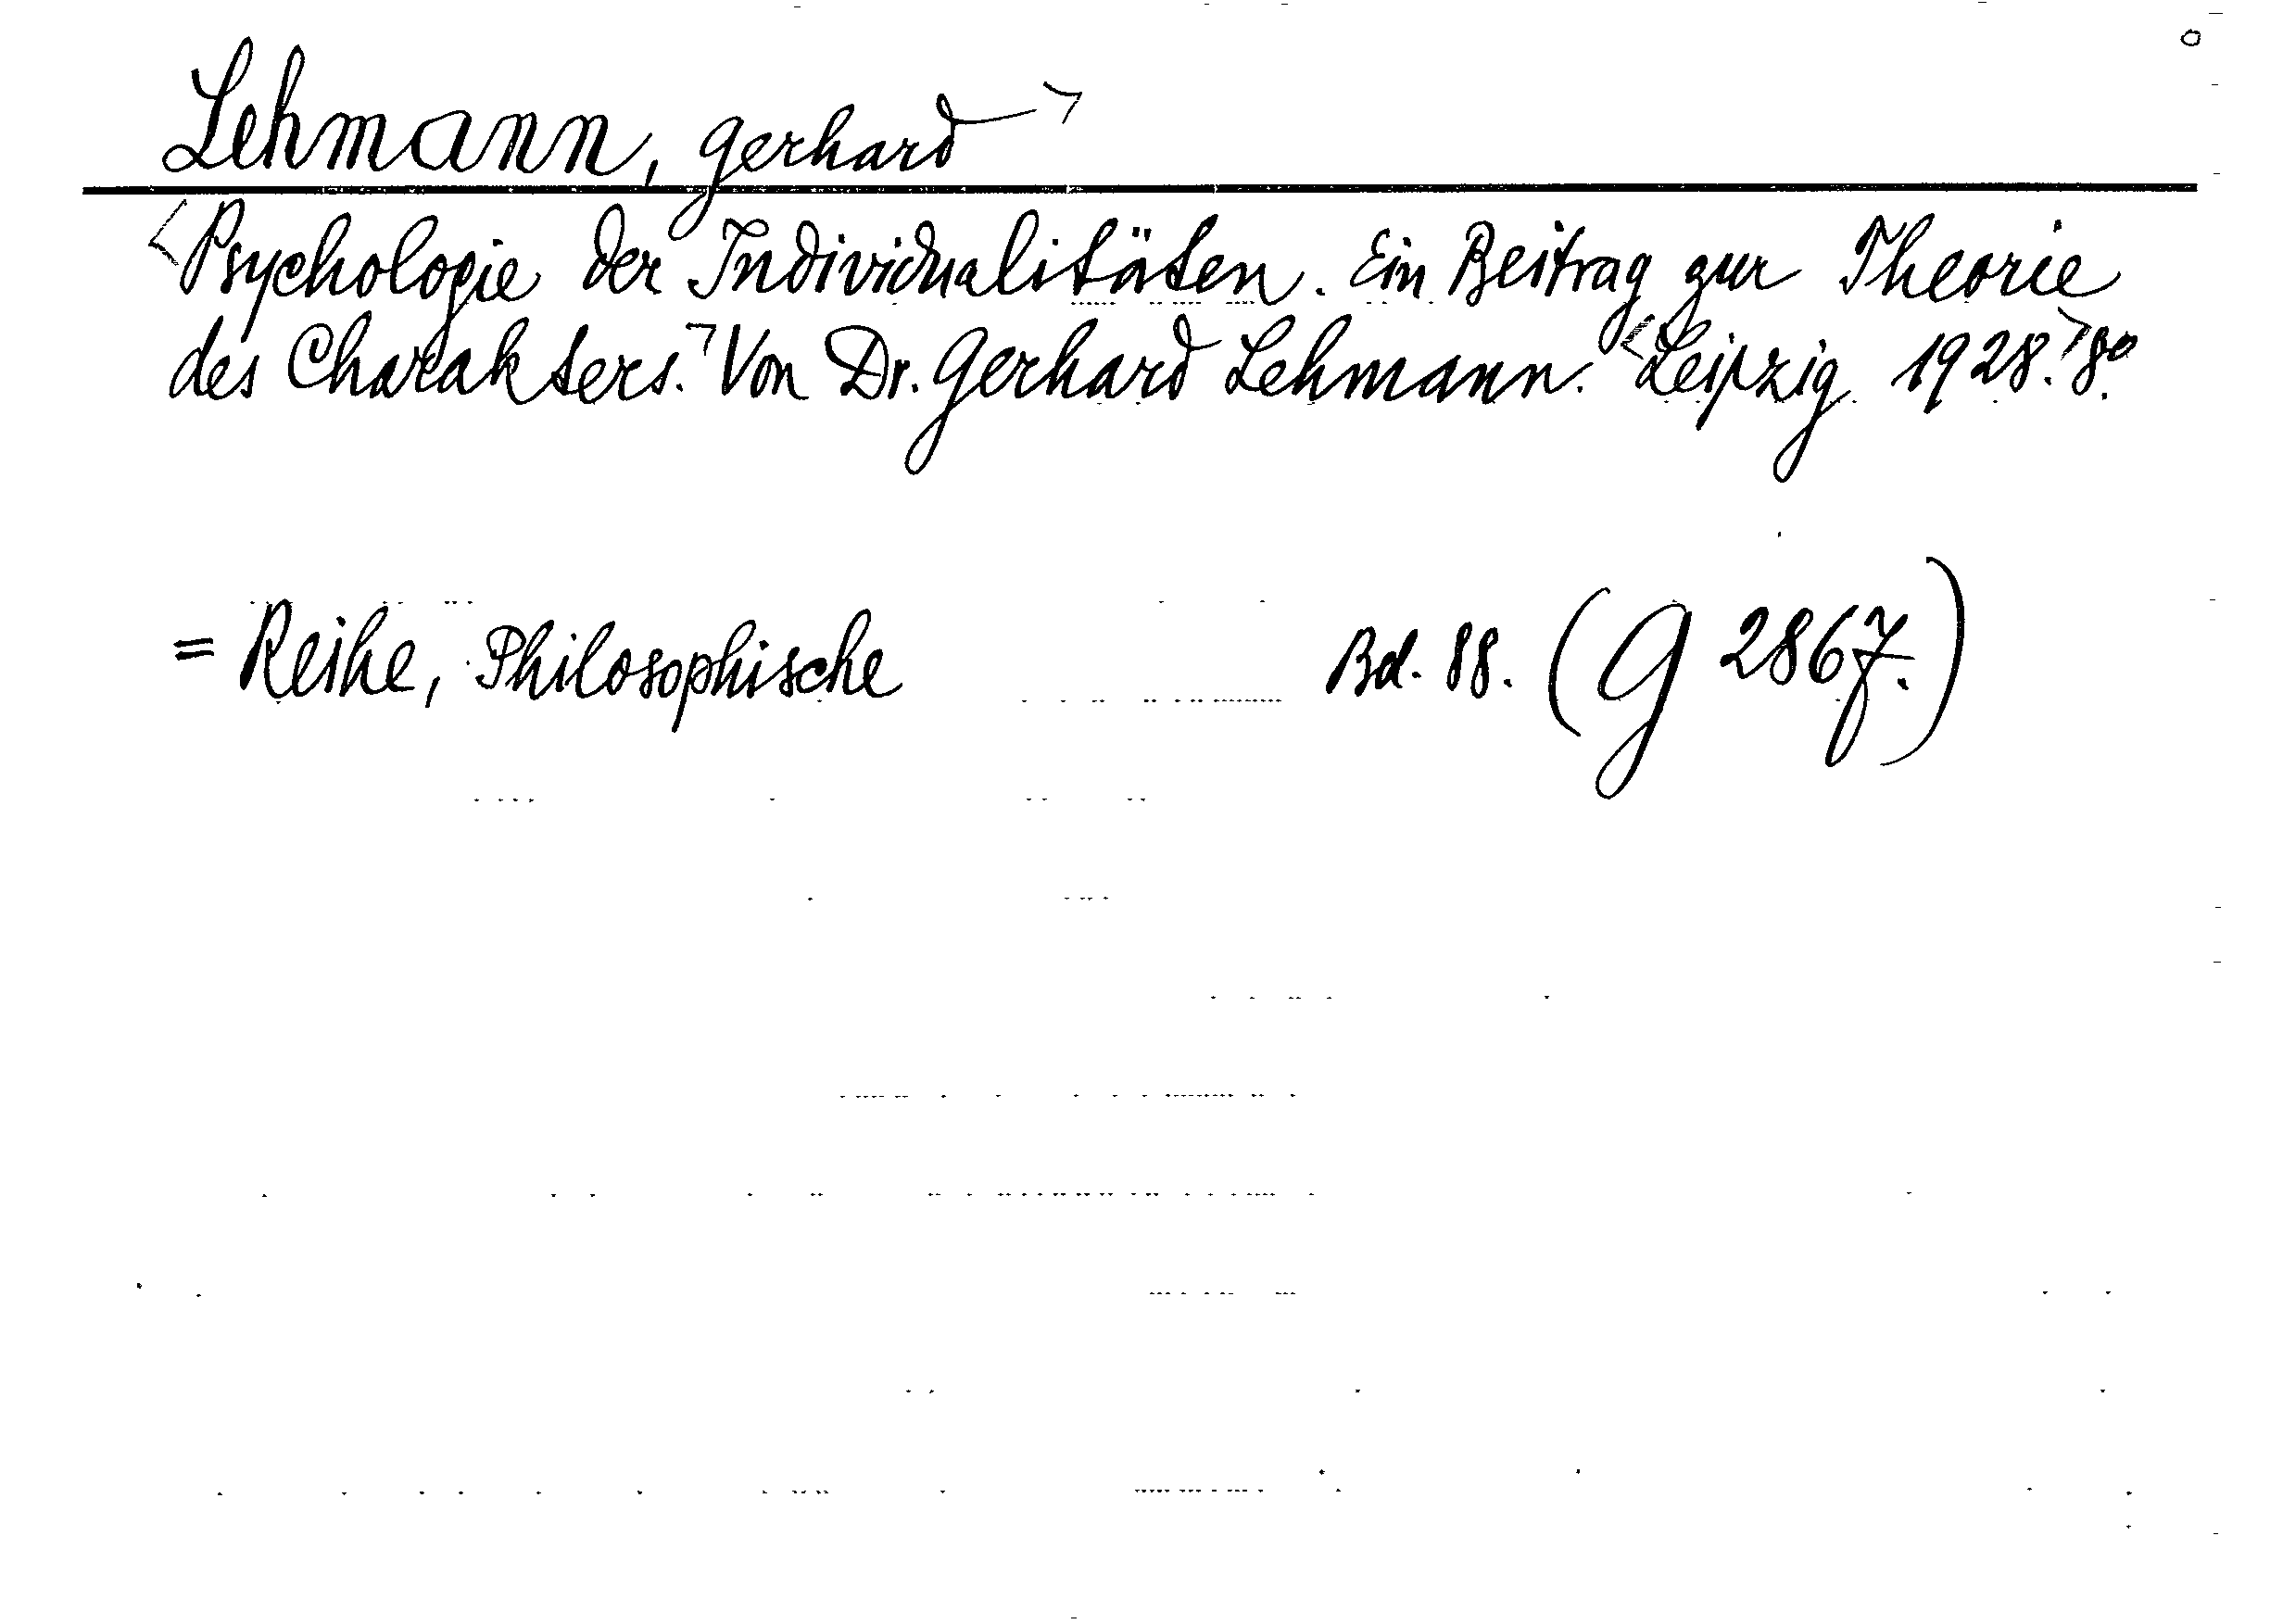 Lehmann, Gerhard ˃
˂Psychologie der Individualitäten. Ein Beitrag zur Theorie
des Charakters.˃ Von Dr. Gerhard Lehmann. ˂Leipzig 1928.˃ 8º.
= Reihe, Philosophische Bd. 88. (G 2867.)